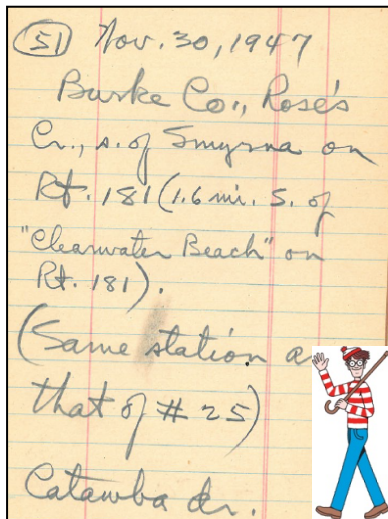 (51) Nov. 30, 1947
Burke Co., Rose's
Cr., s. of Smyrna on
Rt. 181 (1.6 mi. S. of
"Clearwater Beach" on
Rt. 181).
(Same station
that of # 25)
Catawba dr.